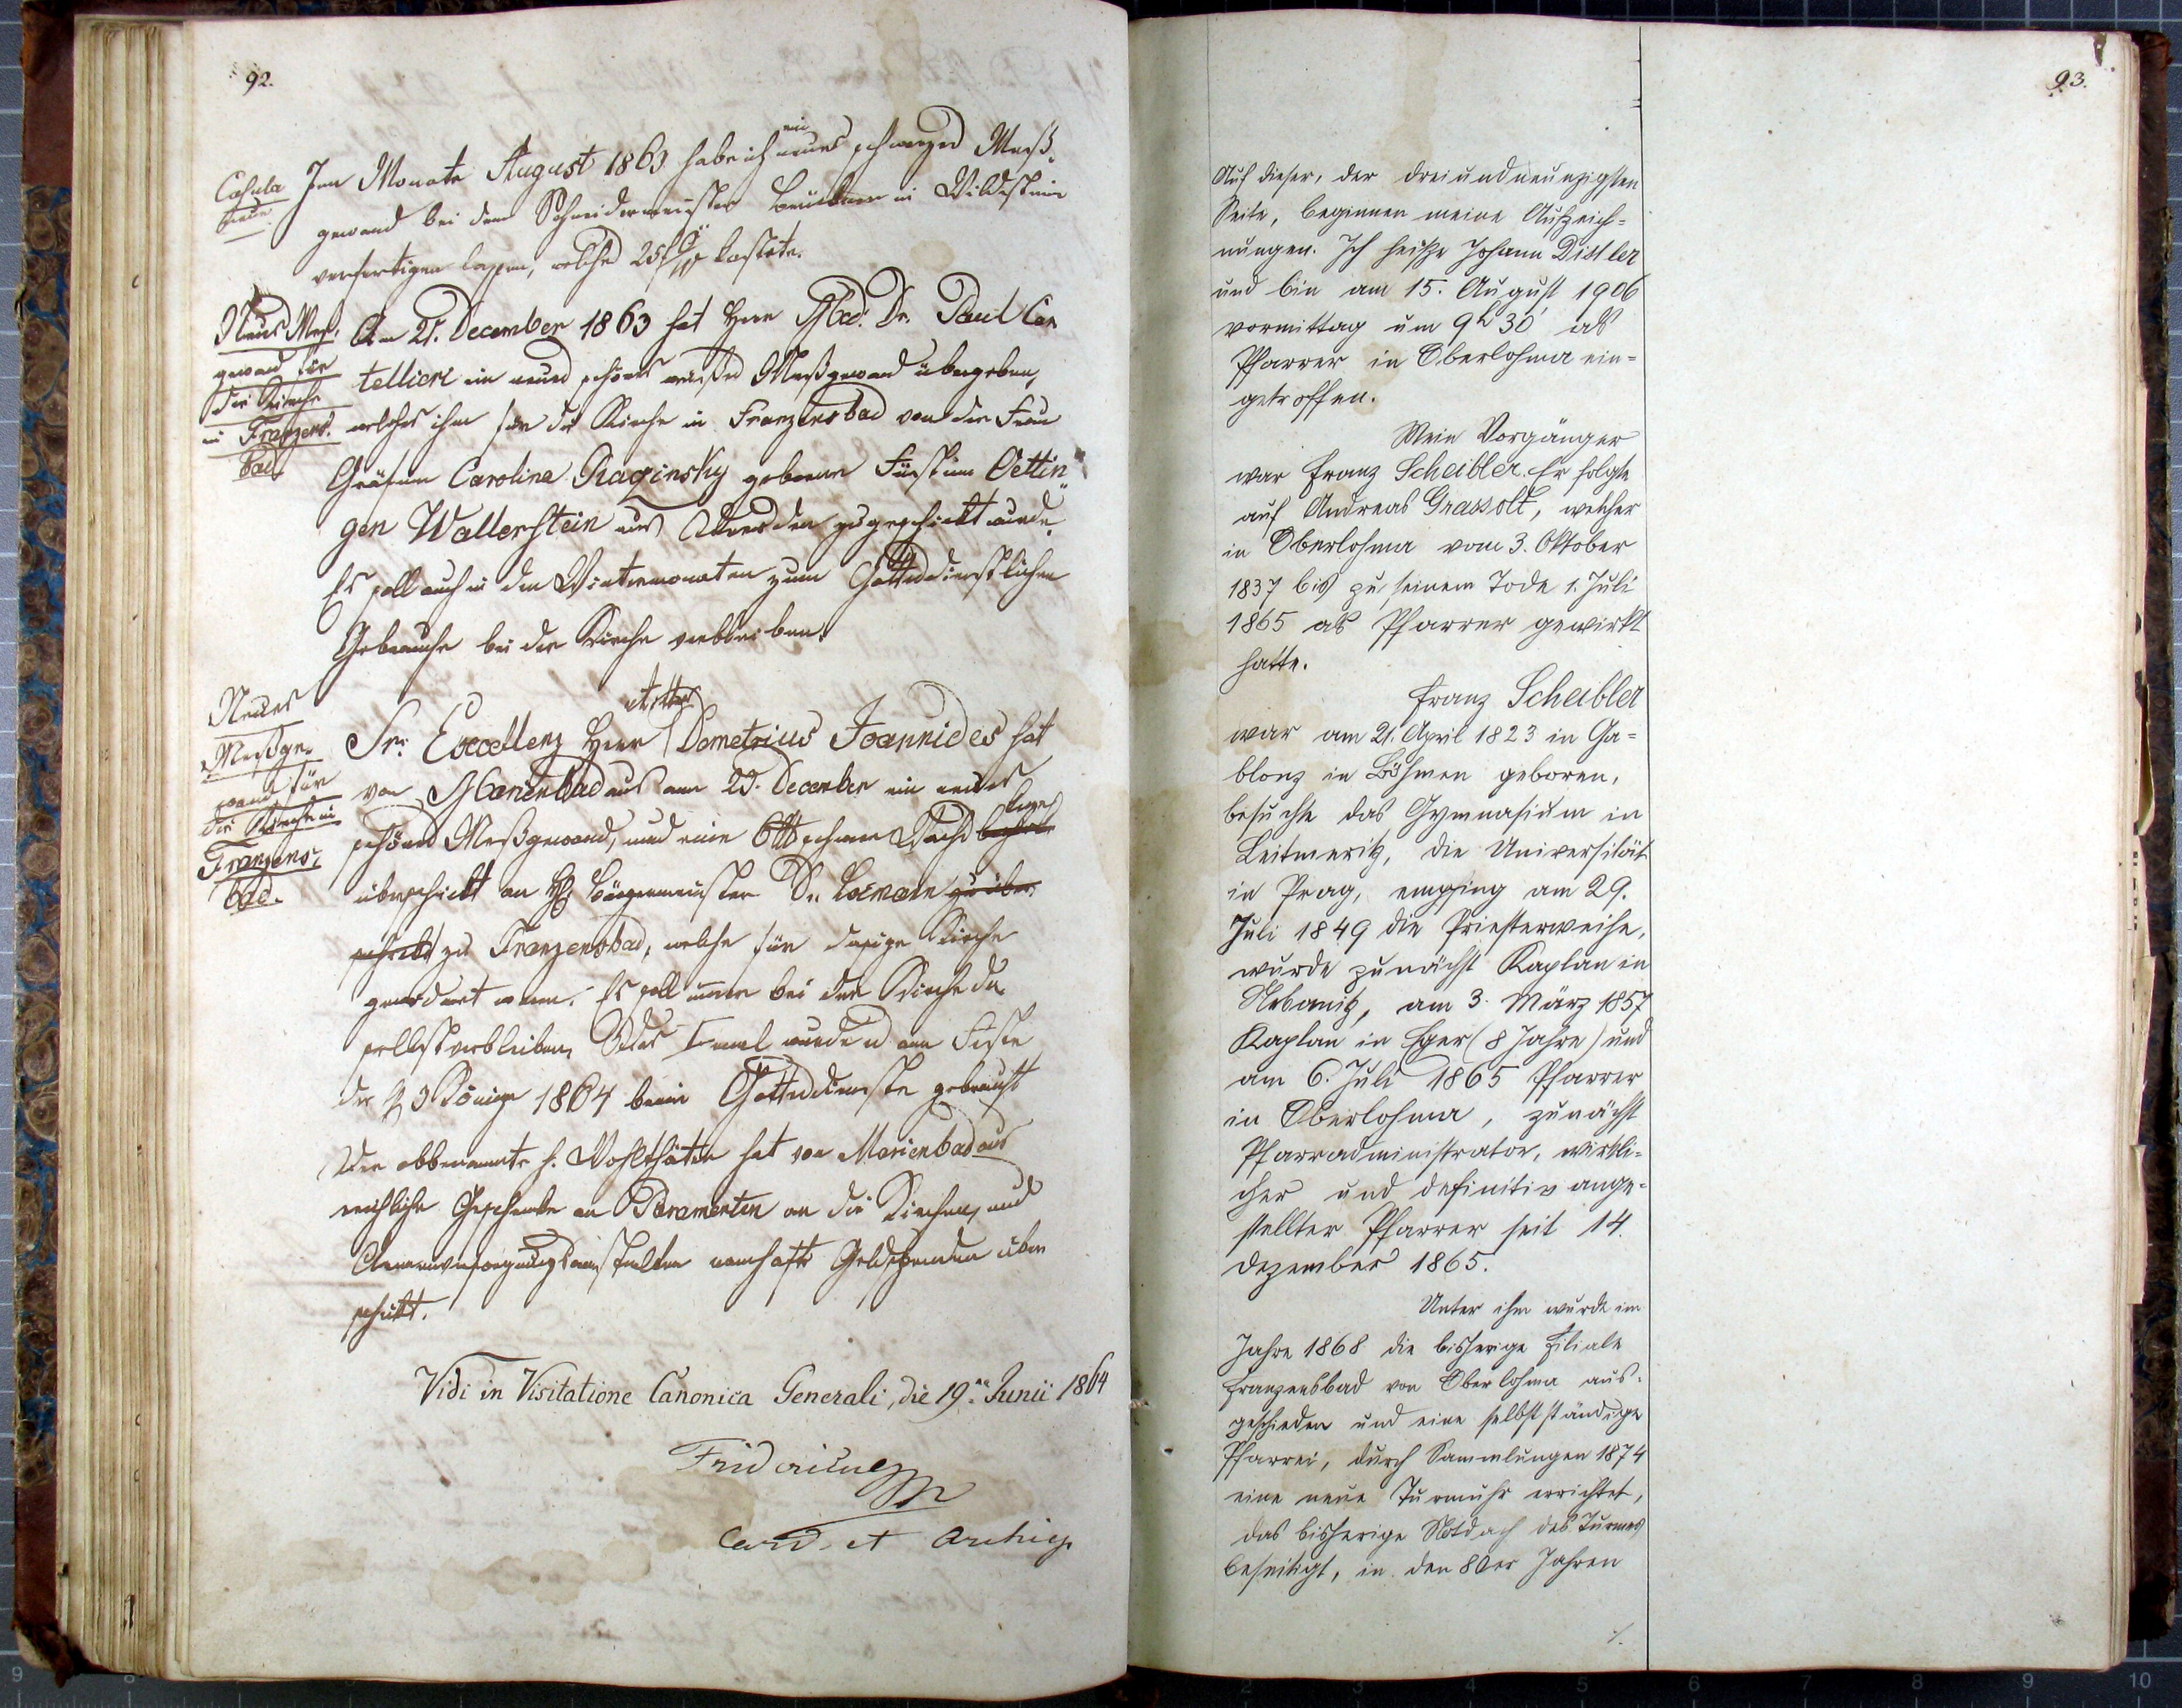 92.
Casula
neue.
Im Monate August 1863 habe ich ein neues schwarzes Meß-
gewand bei dem Schneidermeister in Wildstein
verfertigen lassen, welches 25 f kostete.
Neues Meß-
gewand für
die Kirche
in Franzens-
bad.
Am 21. December 1863 hat Herr Med. Dr. Paul Can
tellieri ein neues schönes weißes Meßgewand übergeben,
welches ihm für die Kirche in Franzensbad von der Frau
Gräfinn Caroline Raczinsky geborene Fürstinn Oettin-
gen Wallerstein aus Dresden zugeschickt wurde.
Es soll auch in den Wintermonaten zum Gottesdienstlichen
Gebrauche bei der Kirche verbleiben.
Neues
Meßge-
wand für
die Kirche in
Franzens-
bad.
Sr. Excellenz Herr Demetrius Joannides hat
von Marienbad aus am 25. December ein neues
schönes Meßgewand, und eine 6 ℔ schwere Wachs
überschickt an H Bürgermeister Dr. Loimann zu über-
schickt zu Franzensbad, welche für dasige Kirche
geordnet waren. Es soll immer bei der Kirche da-
selbst verbleiben. Das 1mal wurde es am Feste
der 3 Könige 1864 beim Gottesdienste gebraucht
Der obbenannte H. Wohlthäter hat von Marienbad aus
reichliche Geschenke an Paramenten an die Kirchen, und
Armenversorgungsanstalten namhafte Geldspenden über
schickt.
Vidi in Visitatione Canonica Generali, die 19. Junii 1864
Fridericus
Card. et Archiep.
93.
Auf dieser, der dreiundneunzigsten
Seite, beginnen meine Aufzeich=
nungen. Ich heiße Johann Distler
und bin am 15. August 1906
vormittag um 9h 30' als
Pfarrer in Oberlohma ein=
getroffen.
Mein Vorgänger
war Franz Scheibler. Er folgte
auf Andreas Grassolt, welcher
in Oberlohma vom 3. Oktober
1837 bis zu seinem Tode 1. Juli
1865 als Pfarrer gewirkt
hatte.
Franz Scheibler
war am 21. April 1823 in Ga=
blonz in Böhmen geboren,
besuchte das Gymnasium in
Leitmeritz, die Universität
in Prag, empfing am 29.
Juli 1849 die Priesterweihe,
wurde zunächst Kaplan in
Urbanitz, am 3. März 1857
Kaplan in Eger (8 Jahre) und
am 6. Juli 1865 Pfarrer
in Oberlohma, zunächst
Pfarradministrator, wirkli=
cher und definitiv ange=
stellter Pfarrer seit 14.
Dezember 1865.
Unter ihm wurde im
Jahre 1868 die bisherige Filiale
Franzensbad von Oberlohma aus=
geschieden und eine selbstständige
Pfarrei, durch Sammlungen 1874
eine neue Turmuhr errichtet,
das bisherige Notdach des Turmes
beseitigt, in den 80er Jahren
./.